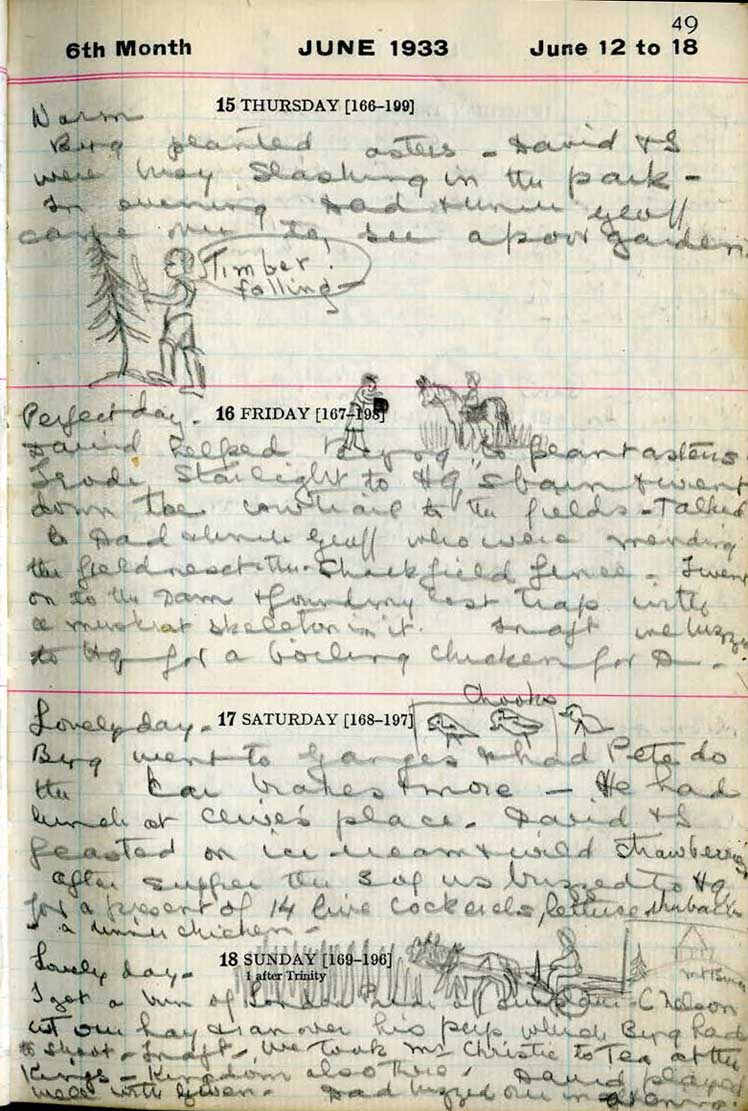 49
6th Month JUNE 1933 June 12 to 18
15 THURSDAY [166-199]
Warm
Byrg planted asters - David & I
were busy slashing in the park -
In evening Dad & Uncle Geoff
came over to see a poor garden.
Timber
falling -
Perfect day. 16 FRIDAY [167-198]
David helped Byrg to plant asters
I rode Starlight to Hq's barn & went
down the cowtrail to the fields - Talked
to Dad & Uncle Geoff who were mending
the field fence - I went
on to the Dam & found my lost trap with
a muskrat skeleton in it. In aft we buzzed
to Hq for a boiling chicken for D -
Chooks
Lovely day. 17 SATURDAY [168-197]
Byrg went to Ganges & had Pete do
the car brakes & more - He had
lunch at Clive's place. David & I
feasted on ice-cream & wild strawberries
After supper the 3 of us buzzed to Hq
for a present of 14 live cockerels, lettuce, rhubarb
& a dinner chicken -
Lovely day - 18 SUNDAY [169-196]
1 after Trinity
I got a of London
cut our hay & ran over his pup which Byrg had
to shoot - In aft - We took Mr Christie to Tea at the
Kings - also there. David played
well with Gwen. Dad buzzed over in evening.